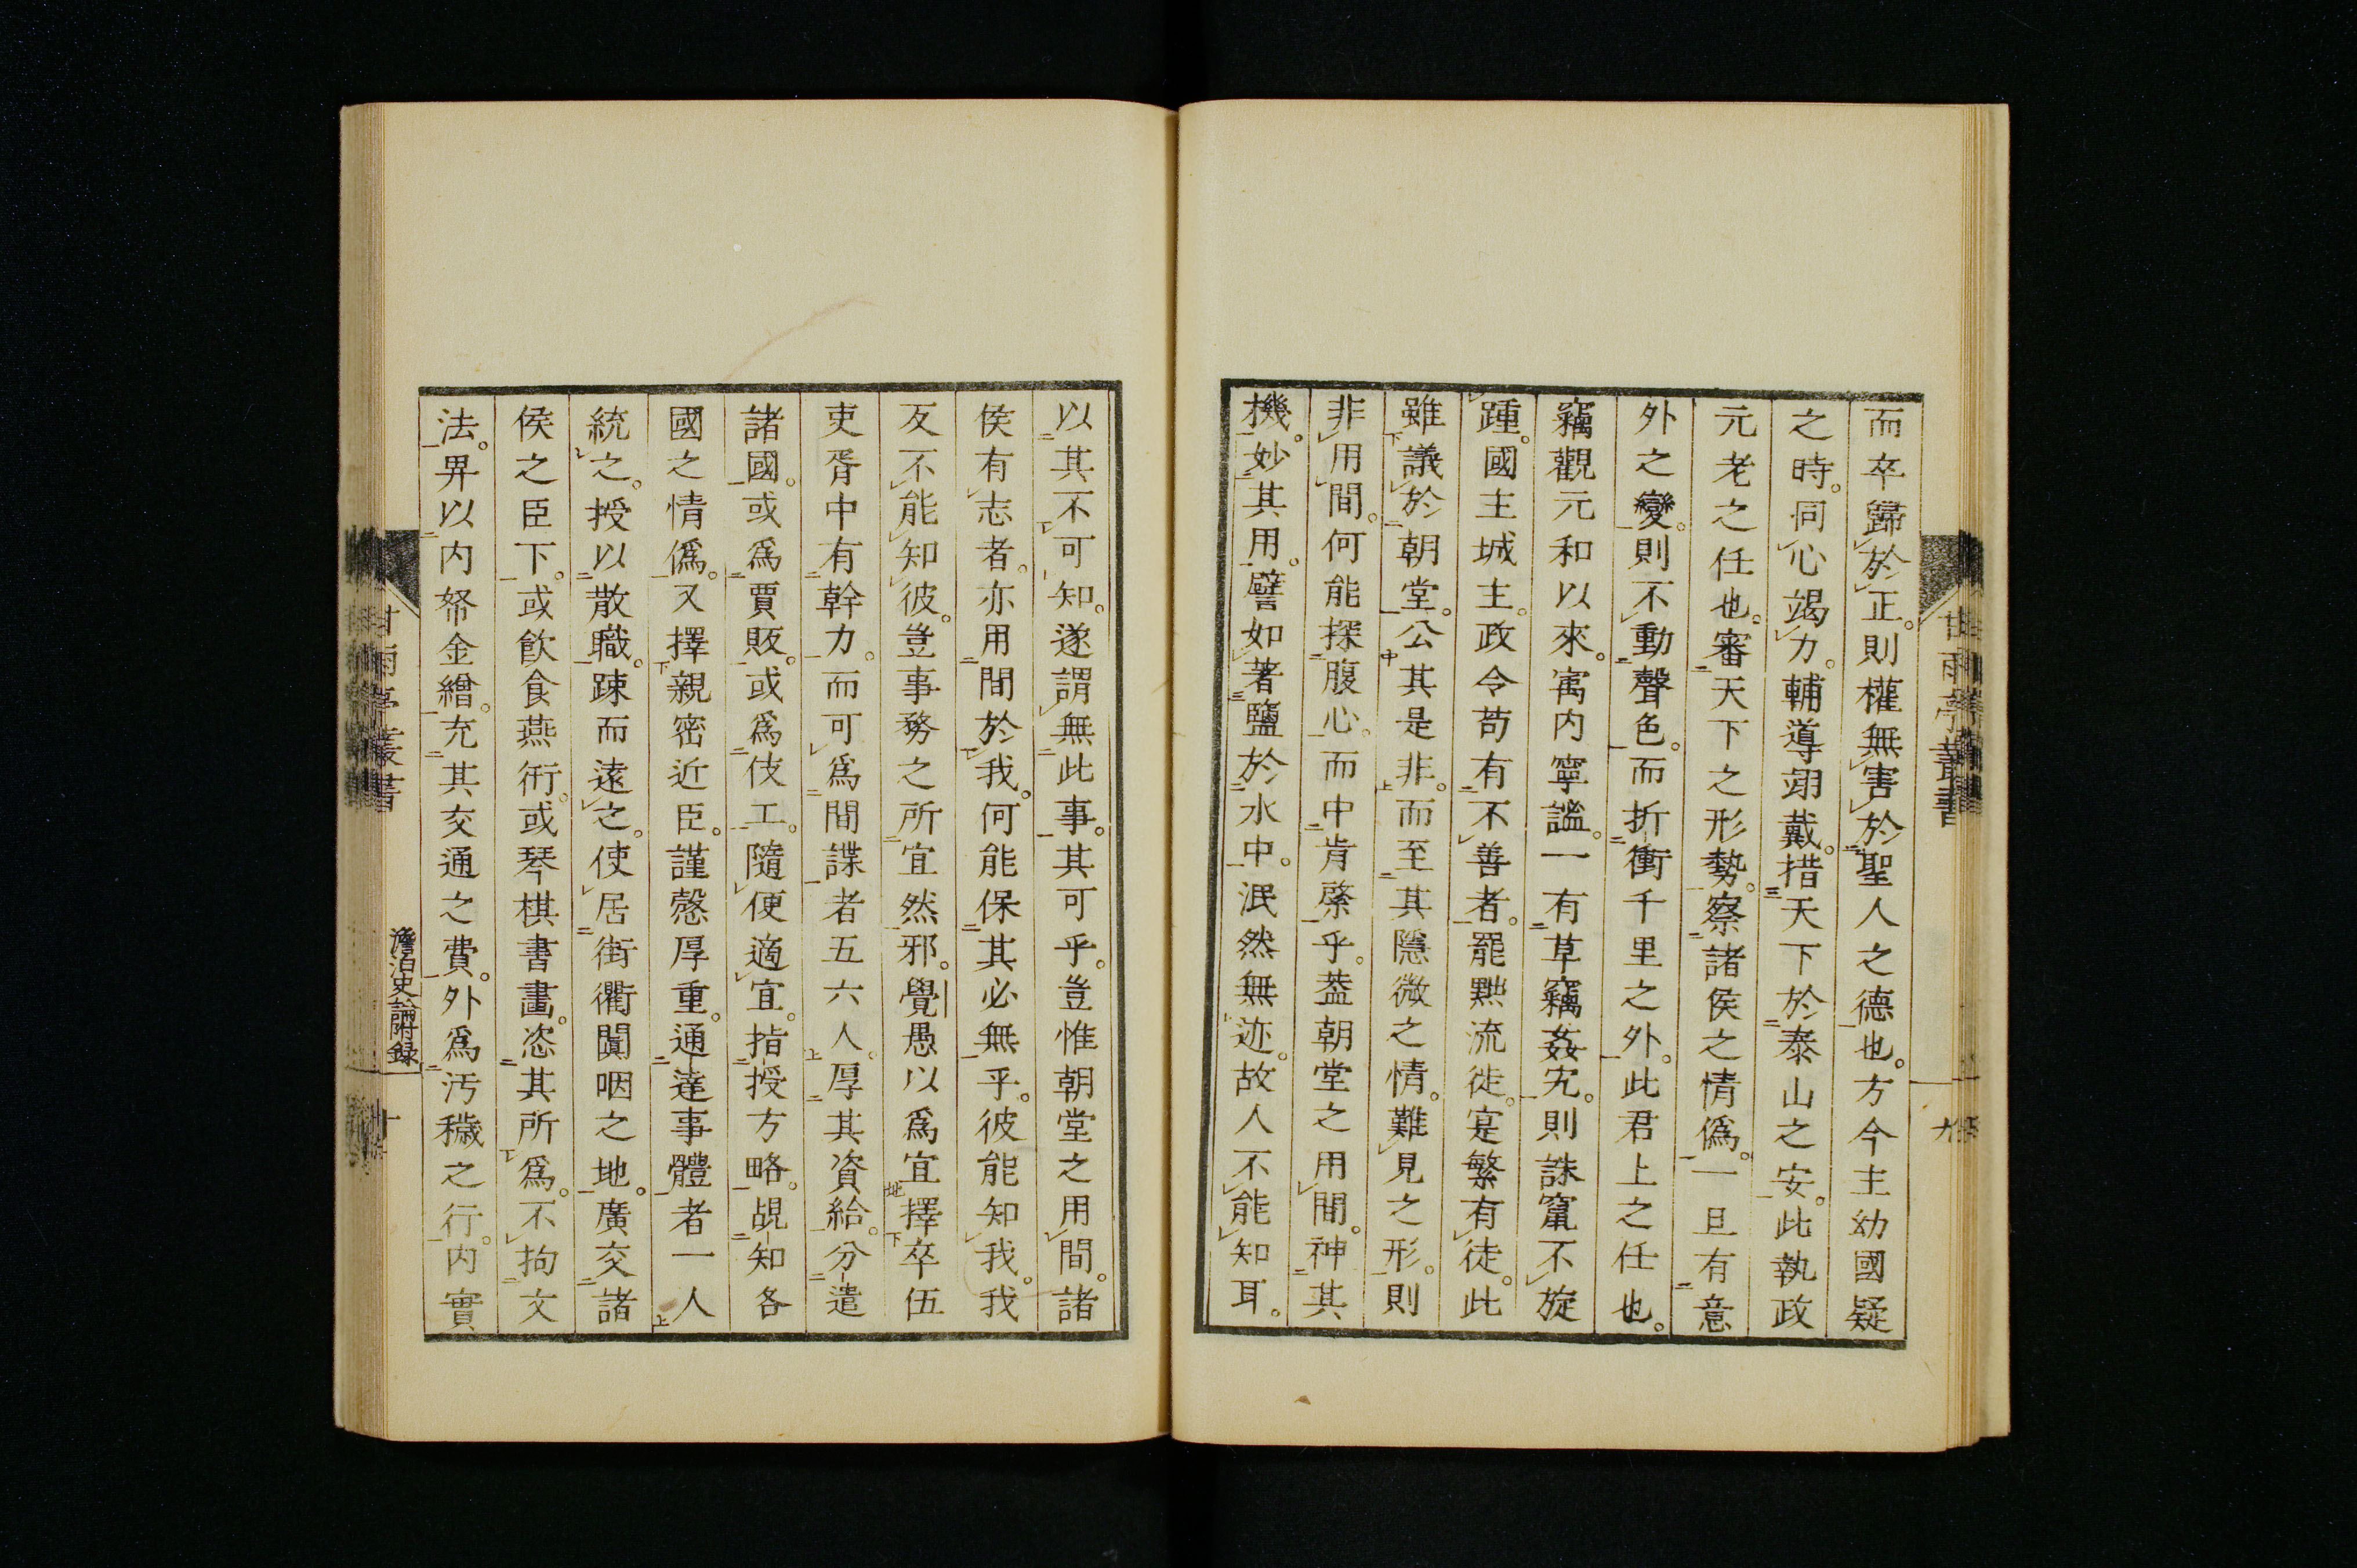 而卒歸於正。則權無害於聖人之德也。方今主幼國疑
之時。同心竭力。輔導翊戴。措天下於泰山之安。此執政
元老之任也。審天下之形勢。察諸侯之情僞。一旦有意
外之變。則不動聲色。而折衝千里之外。此君上之任也。
竊觀元和以來。寓内寧謐。一有草竊姦宄。則誅竄不旋
踵。國主城主。政令苟有不善者。罷黜流徙。寔繁有徒。此
雖議於朝堂。公其是非。而至其隱微之情。難見之形。則
非用間。何能探腹心。而中肯綮乎。葢朝堂之用間。神其
機。妙其用。譬如著鹽於水中。泯然無迹。故人不能知耳。
甘雨亭叢書
九
以其不可知。遂謂無此事。其可乎。豈惟朝堂之用間。諸
侯有志者。亦用間於我。何能保其必無乎。彼能知我。我
反不能知彼。豈事務之所宜然邪。覺愚以爲宜擇卒伍
吏胥中有幹力。而可爲間諜者五六人。厚其資給。分遣
諸國。或爲賈販。或爲伎工。隨便適宜。指授方略。覘知各
國之情僞。又擇親密近臣。謹愨厚重。通達事體者一人
統之。授以散職。踈而遠之。使居街衢闠咽之地。廣交諸
侯之臣下。或飮食燕衎。或琴棋書畫。恣其所爲。不拘文
法。畀以内帑金繒。充其交通之費。外爲汚穢之行。内實
甘雨亭叢書
澹泊史論附録
十